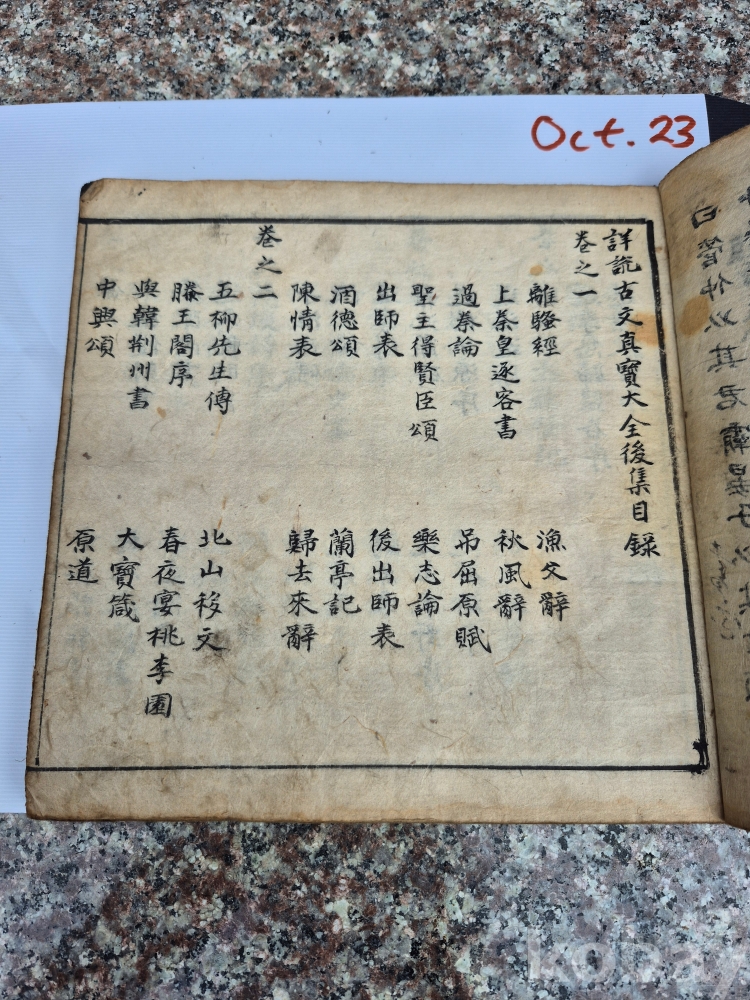 Oct. 23
詳說古文真寶大全後集目錄
卷之一
離騷經 漁父辭
上秦皇逐客書 秋風辭
過秦論 吊屈原賦
聖主得賢臣頌 樂志論
出師表 後出師表
酒德頌 蘭亭記
陳情表 歸去來辭
卷之二
五柳先生傳 北山移文
滕王閣序 春夜宴桃李園
與韓荆州書 大寶箴
中興頌 原道
曰管仲以其君霸晏子以
kobay